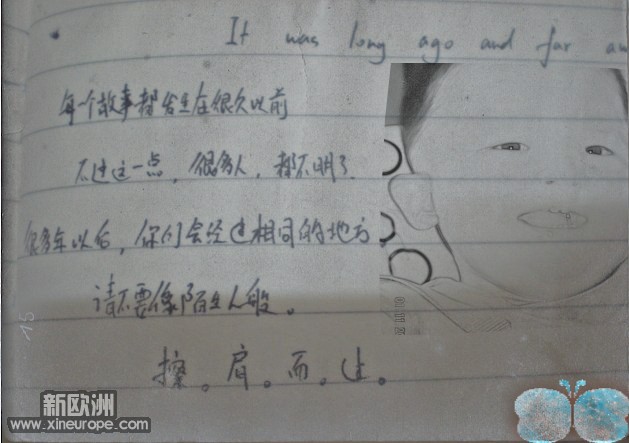 It was long ago and far
每个故事都发生在很久以前
不过这一点，很多人，都不明了.
很多年以后，你们会经过相同的地方
请不要像陌生人般。
擦。肩。而。过。
15
新欧洲
www.xineurope.com